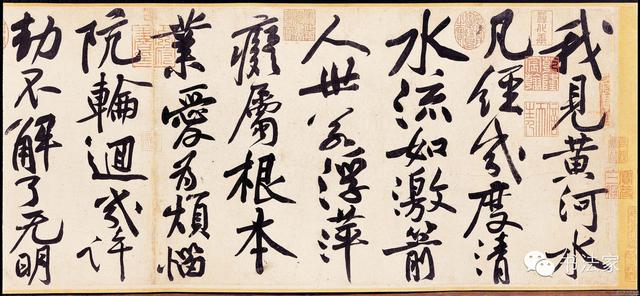 我見黄河水
凡經幾度清
水流如激箭
人世若浮萍
癡屬根本
業愛為煩惱
阬輪迴幾許
劫不解了无明
书法家